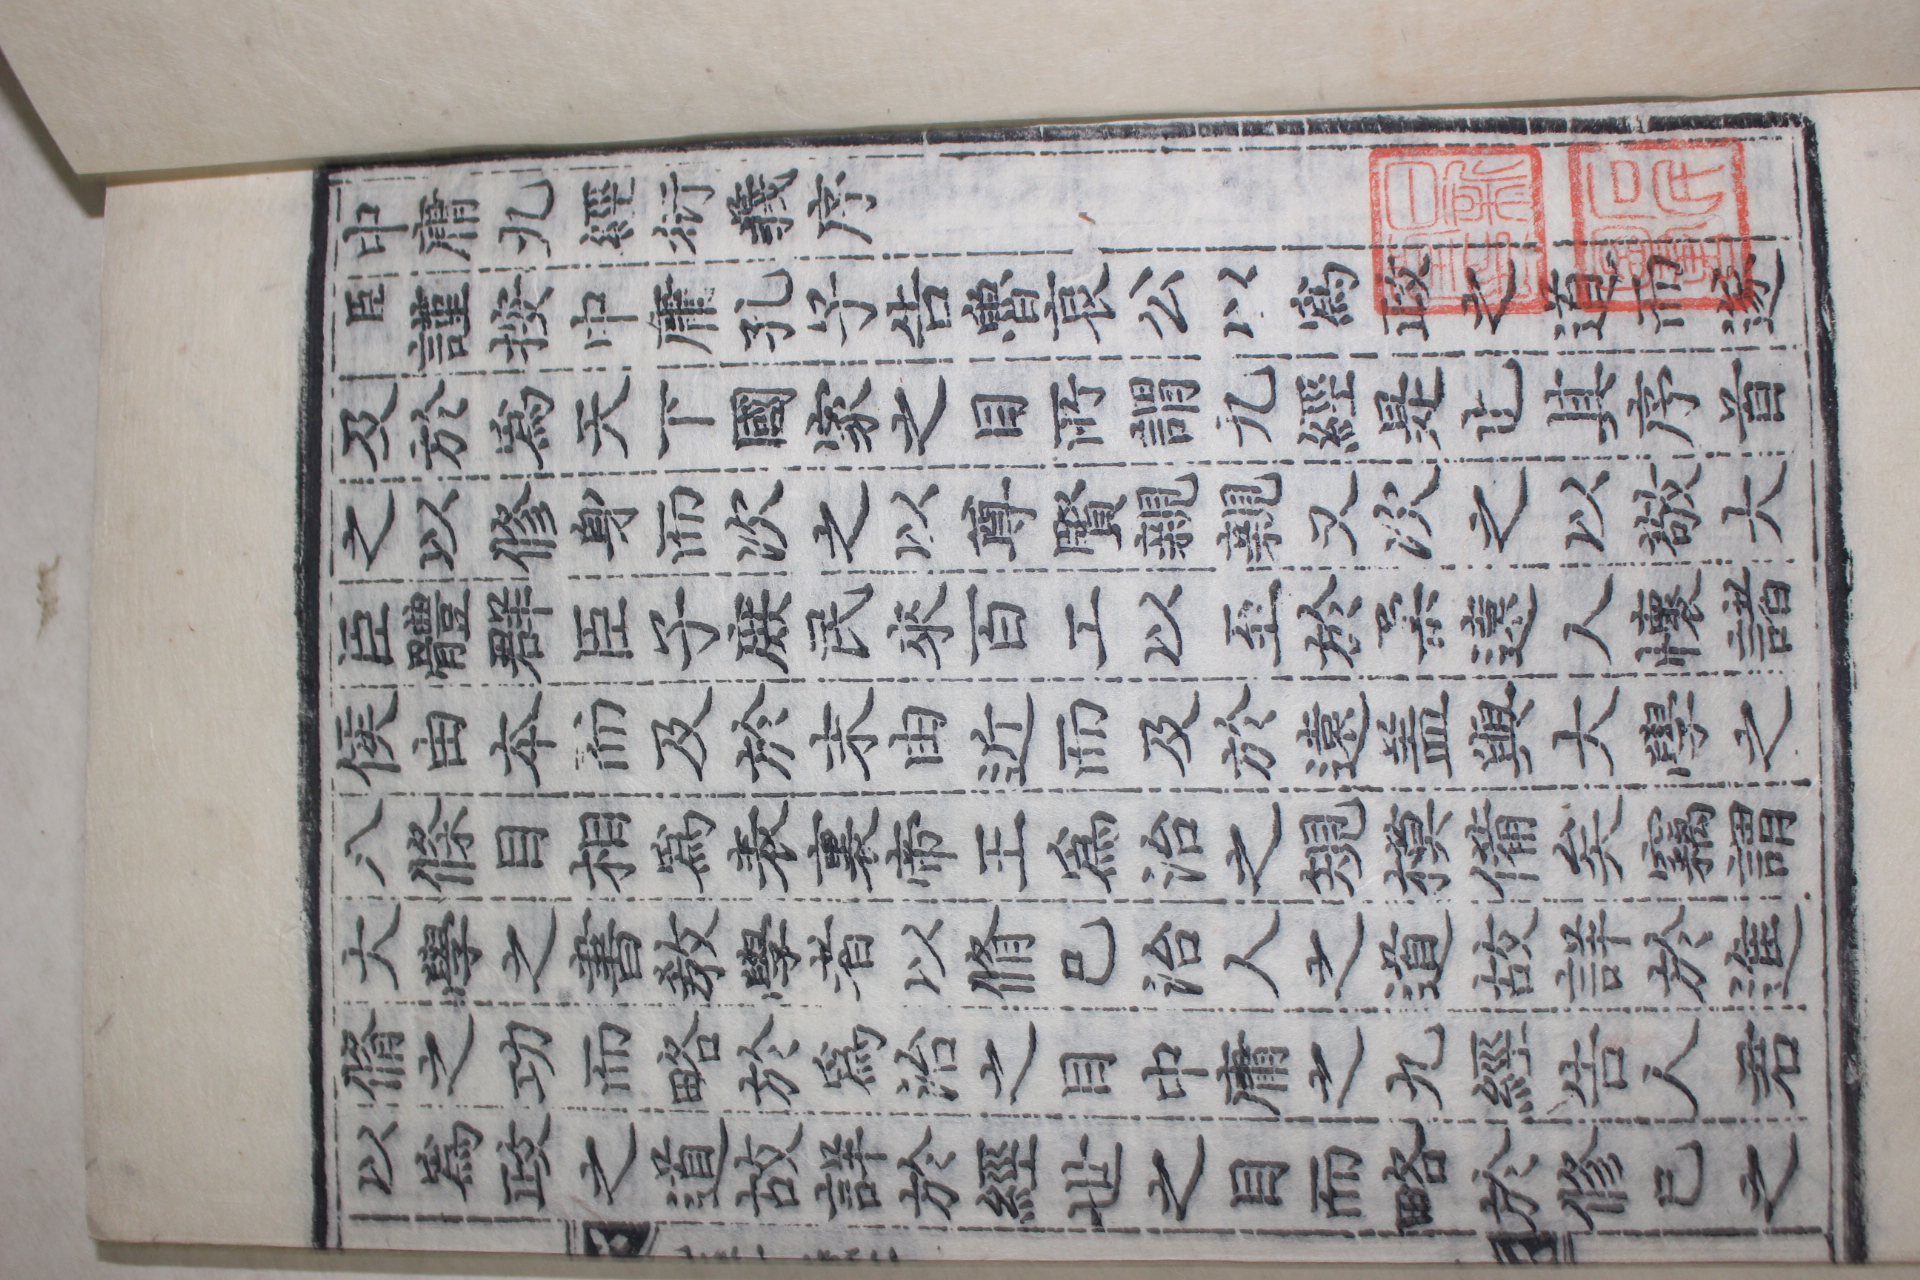 中庸九經衍義序
臣謹按中庸孔子告魯哀公以爲政之道而遂
及於爲天下國家之目所謂九經是也其序首
之以修身而次之以尊賢親親又次之以敬大
臣體群臣子庶民來百工以至於柔遠人懷諸
侯由本而及於末由近而及於遠盖與大學之
八條目相爲表裏帝王爲治之規模備矣竊謂
大學之書敎學者以脩己治人之道故詳於進
脩之功而略於爲治之目中庸之九經告人君
以爲政之道故詳於經世之目而略於修已之